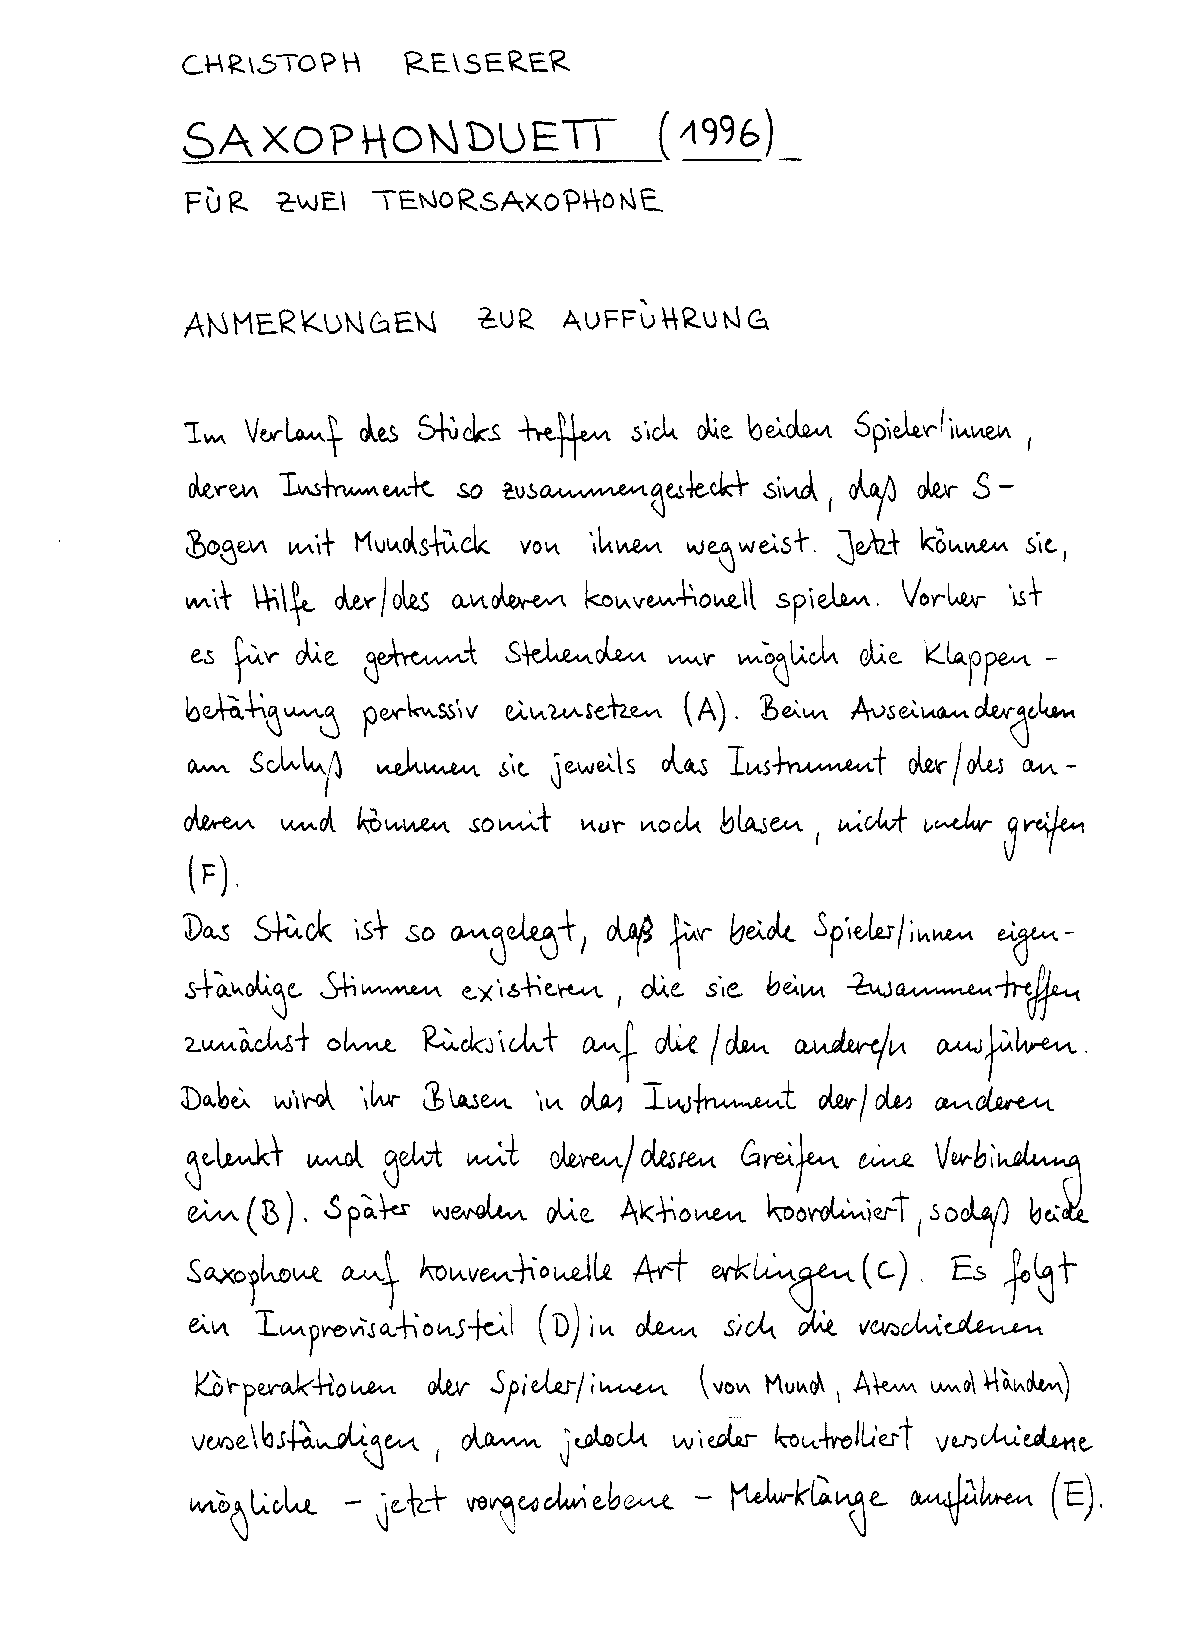 CHRISTOPH REISERER
SAXOPHONDUETT (1996)
FÜR ZWEI TENORSAXOPHONE
ANMERKUNGEN ZUR AUFFÜHRUNG
Im Verlauf des Stücks treffen sich die beiden Spieler/innen,
deren Instrumente so zusammengesteckt sind, daß der S-
Bogen mit Mundstück von ihnen wegweist. Jetzt können sie,
mit Hilfe der/des anderen konventionell spielen. Vorher ist
es für die getrennt Stehenden nur möglich die Klappen-
betätigung perkussiv einzusetzen (A). Beim Auseinandergehen
am Schluß nehmen sie jeweils das Instrument der/des an-
deren und können somit nur noch blasen, nicht mehr greifen
(F).
Das Stück ist so angelegt, daß für beide Spieler/innen eigen-
ständige Stimmen existieren, die sie beim Zusammentreffen
zunächst ohne Rücksicht auf die/den andere/n ausführen.
Dabei wird ihr Blasen in das Instrument der/des anderen
gelenkt und geht mit deren/dessen Greifen eine Verbindung
ein (B). Später werden die Aktionen koordiniert, sodaß beide
Saxophone auf konventionelle Art erklingen (C). Es folgt
ein Improvisationsteil (D) in dem sich die verschiedenen
Körperaktionen der Spieler/innen (von Mund, Atem und Händen)
verselbständigen, dann jedoch wieder kontrolliert verschiedene
mögliche - jetzt vorgeschriebene - Mehrklänge ausführen (E).